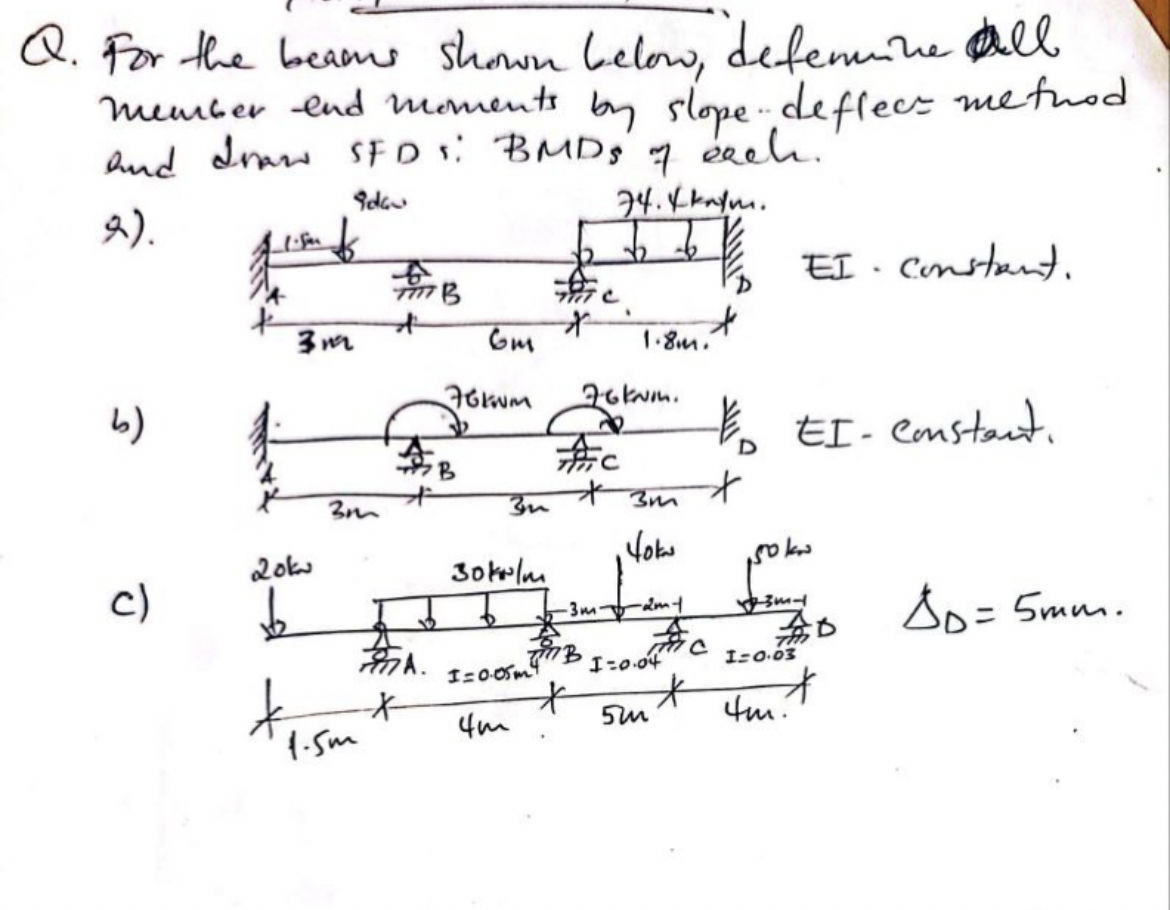 Q. For the beams shown below, determine all
member end moments by slope-deflecs method
and draw SFDs & BMDs of each.
a).
1.5m
74.4kN/m.
EI - constant.
A
B
C
D
3m
6m
1.8m.
b)
76kNm
76kNm.
EI - constant.
A
B
C
D
3m
3m
3m
c)
20kN
30kN/m
40kN
50kN
3m
2m
3m
ΔD = 5mm.
A.
I=0.05m⁴
B
I=0.04
C
I=0.03
D
1.5m
4m
5m
4m.